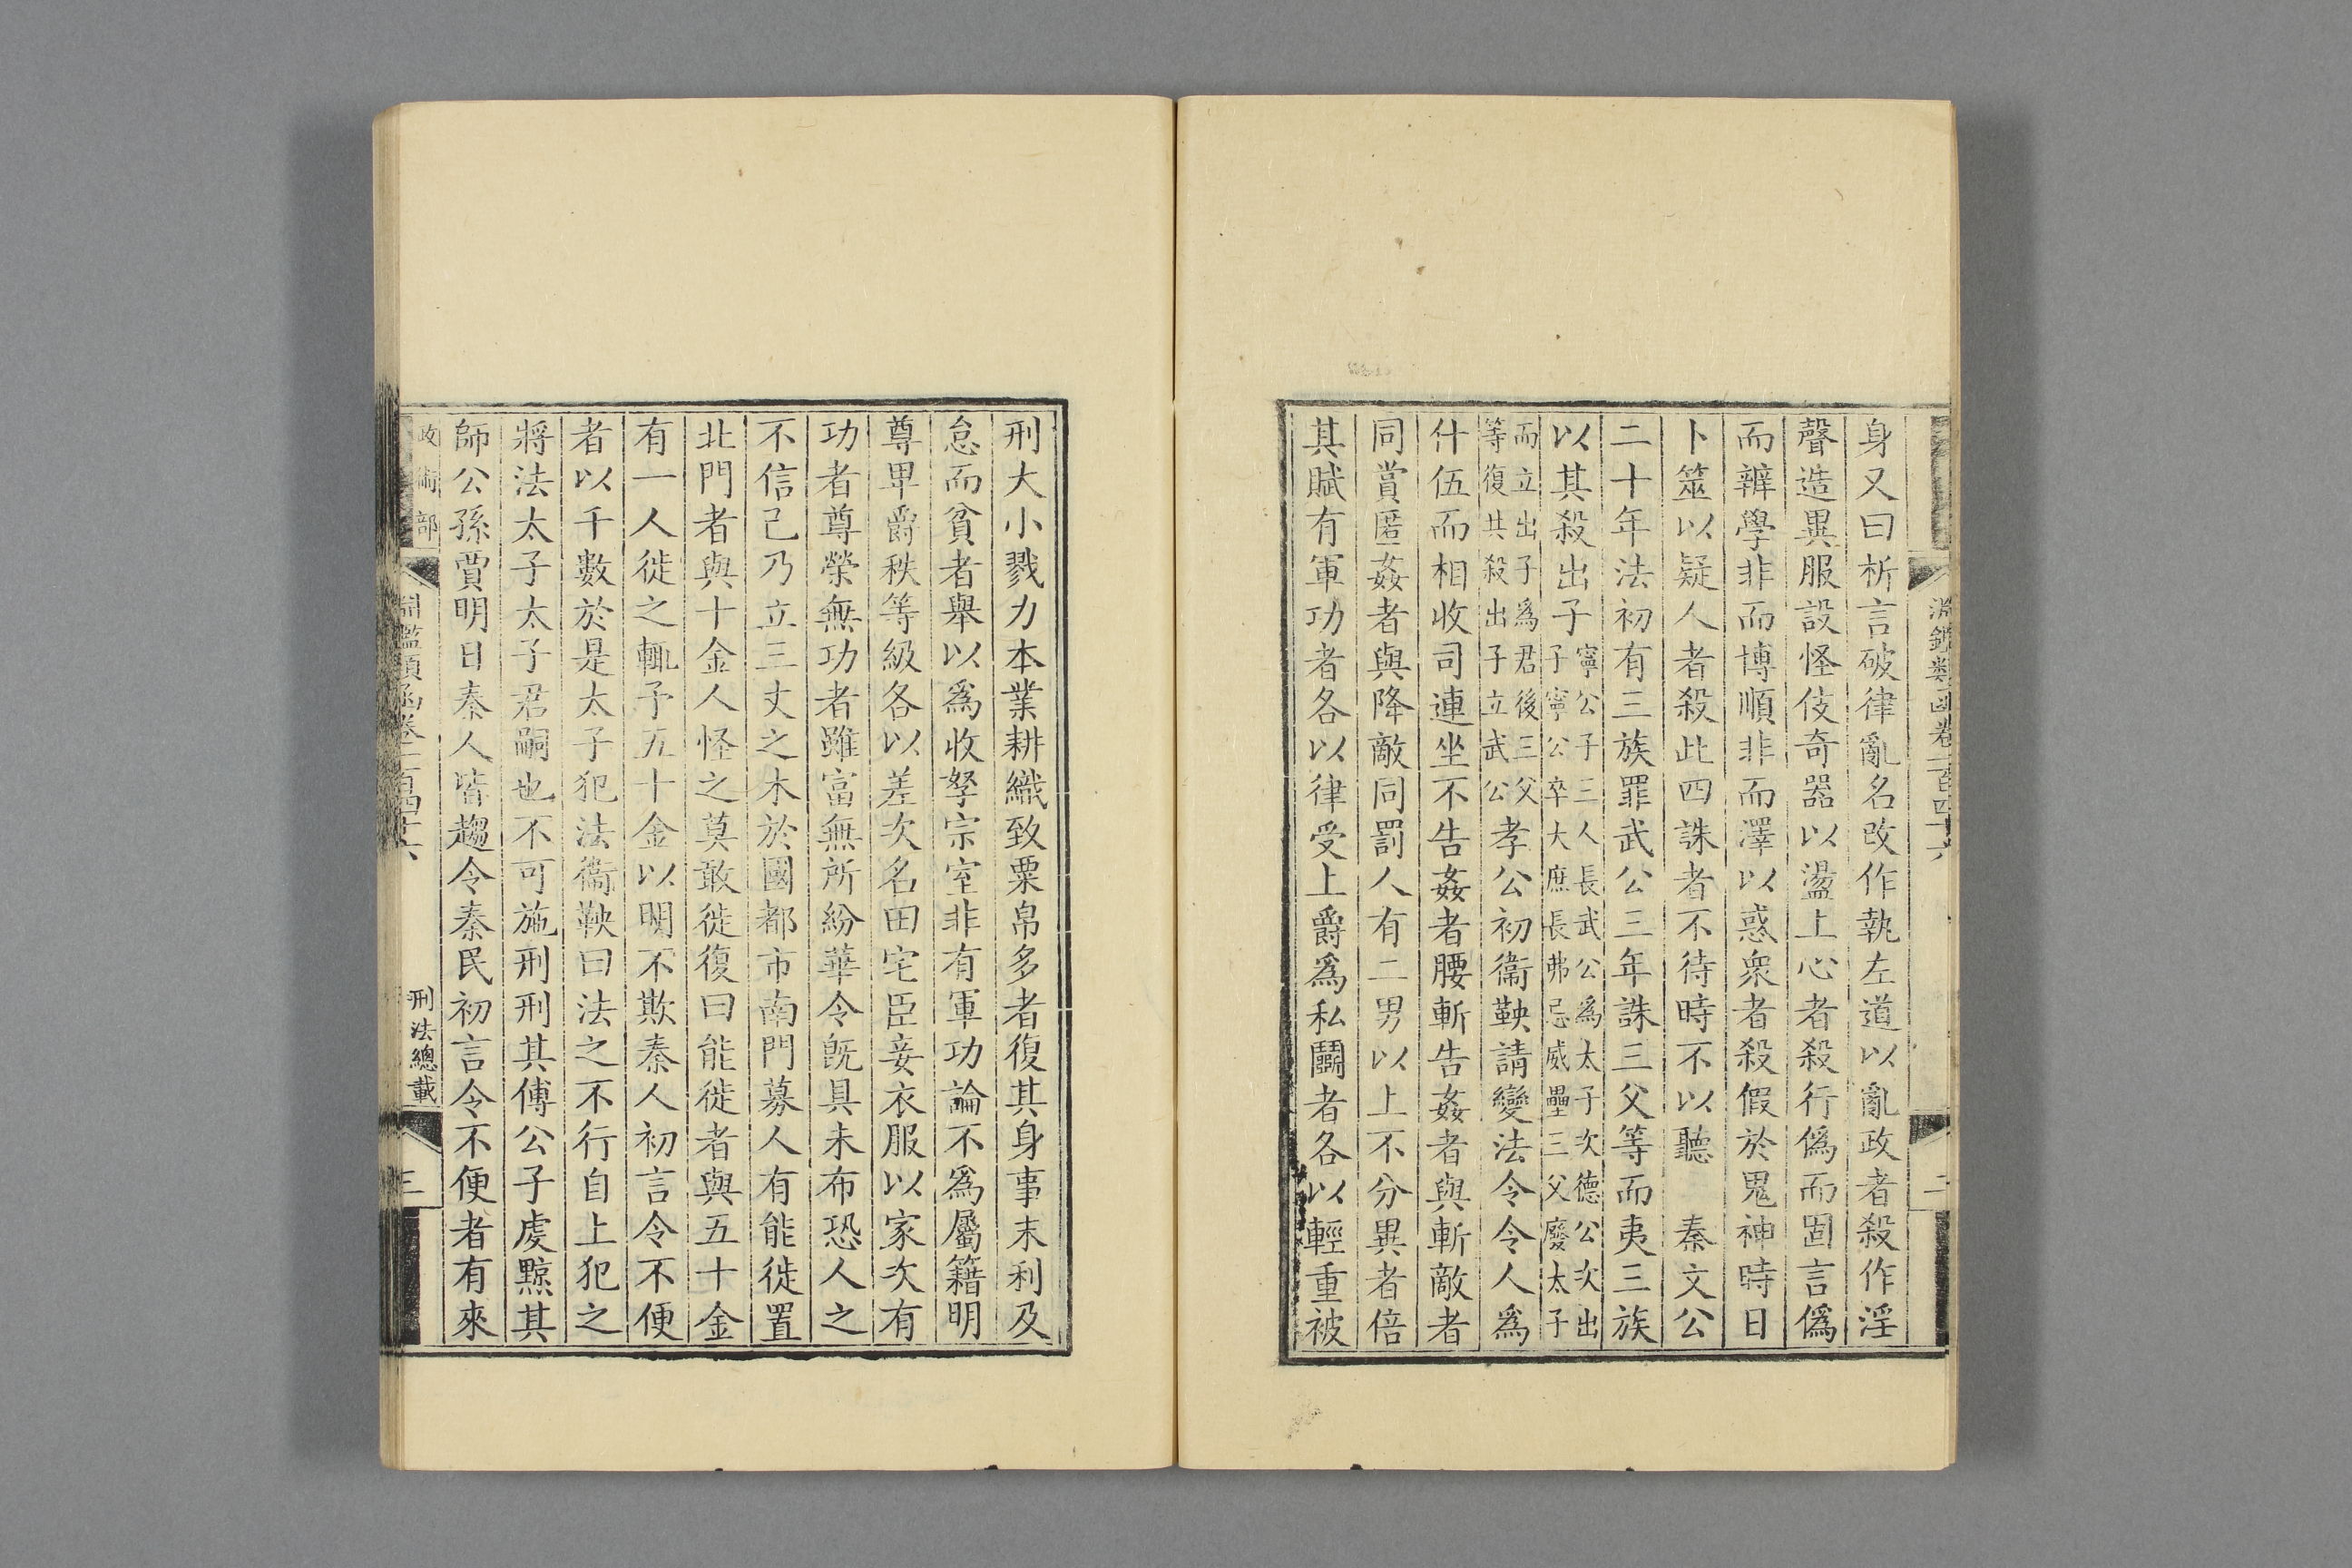 淵鑑類函卷一百四十六
二
身又曰析言破律亂名改作執左道以亂政者殺作淫
聲造異服設怪伎奇器以盪上心者殺行僞而固言僞
而辯學非而博順非而澤以惑衆者殺假於鬼神時日
卜筮以疑人者殺此四誅者不待時不以聽　秦文公
二十年法初有三族罪武公三年誅三父等而夷三族
以其殺出子寧公子三人長武公爲太子次德公次出
子寧公卒大庶長弗忌威壘三父廢太子
而立出子爲君後三父
等復共殺出子立武公孝公初衞鞅請變法令令人爲
什伍而相收司連坐不告姦者腰斬告姦者與斬敵者
同賞匿姦者與降敵同罰人有二男以上不分異者倍
其賦有軍功者各以律受上爵爲私鬬者各以輕重被
刑大小戮力本業耕織致粟帛多者復其身事末利及
怠而貧者舉以爲收孥宗室非有軍功論不爲屬籍明
尊卑爵秩等級各以差次名田宅臣妾衣服以家次有
功者尊榮無功者雖富無所紛華令旣具未布恐人之
不信己乃立三丈之木於國都市南門募人有能徙置
北門者與十金人怪之莫敢徙復曰能徙者與五十金
有一人徙之輒予五十金以明不欺秦人初言令不便
者以千數於是太子犯法衞鞅曰法之不行自上犯之
將法太子太子君嗣也不可施刑刑其傅公子虔黥其
師公孫賈明日秦人皆趨令秦民初言令不便者有來
政術部
淵鑑類函卷一百四十六
刑法總載
三